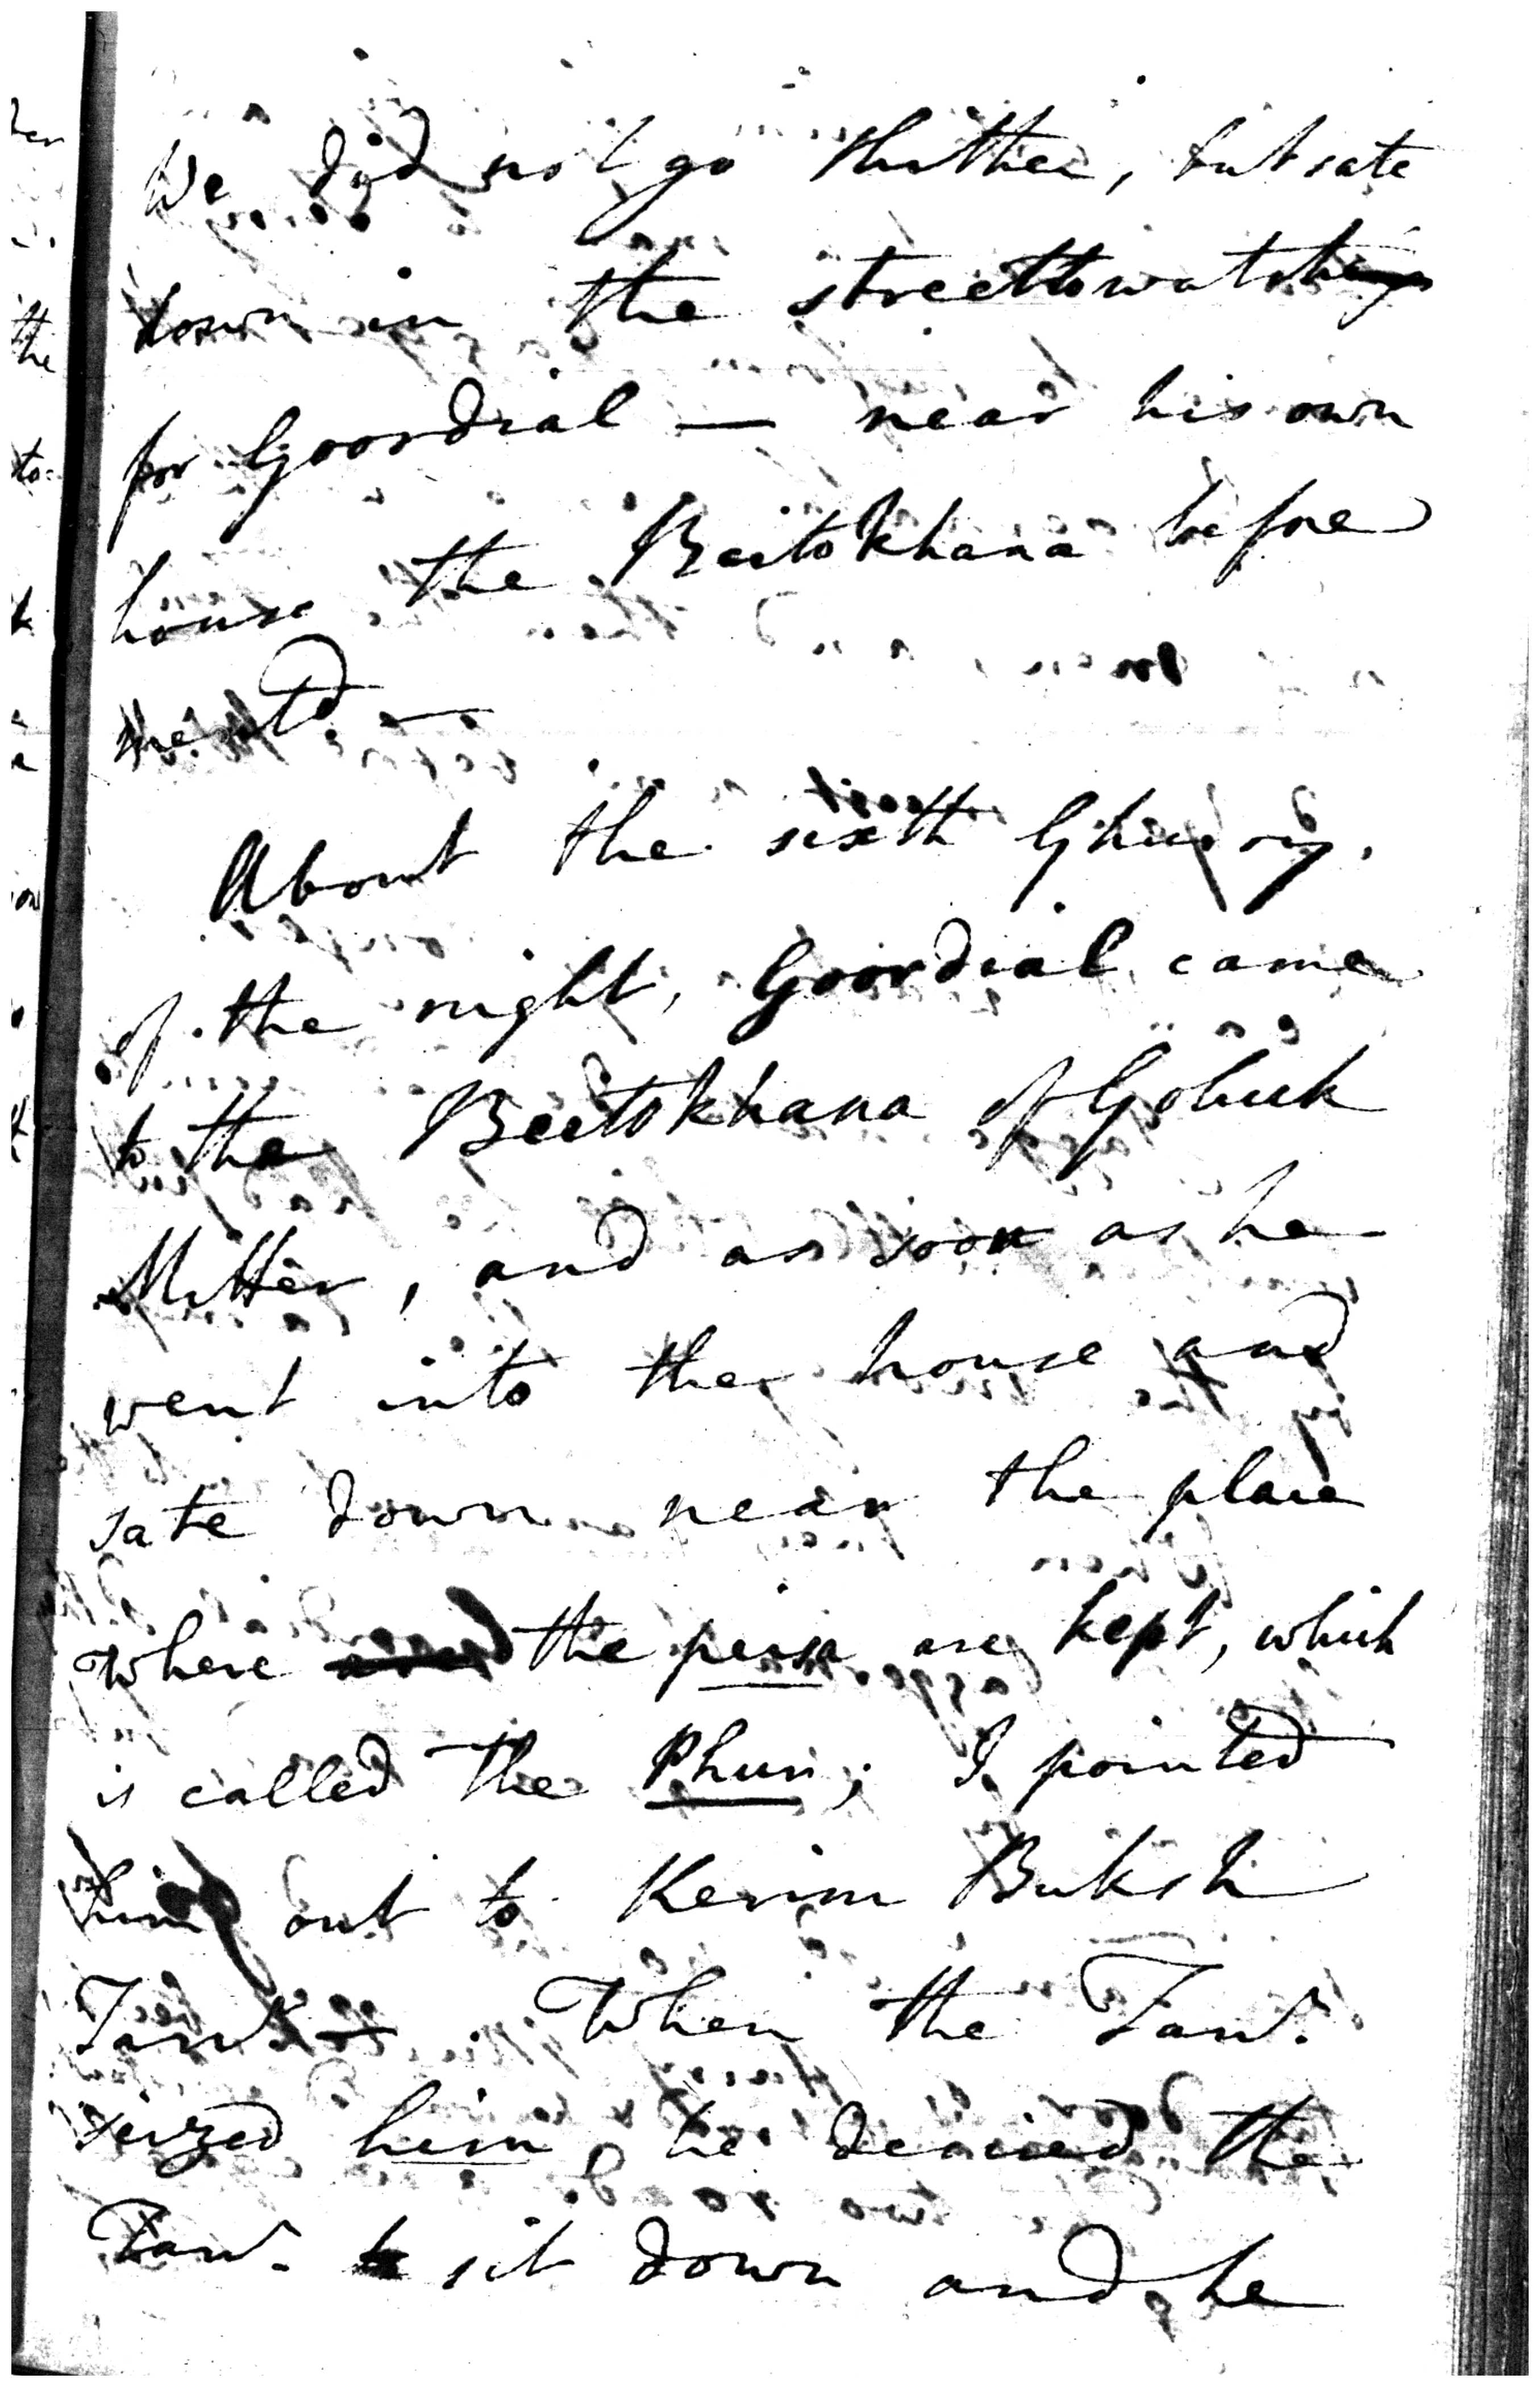 We did not go thither, but sate
down in the street to watch
for Goordial — near his own
house the Beitokhana before
ment.d —
About the sixth Ghurry,
of the night, Goordial came
to the Beetokhana of Gobuk
Mitter, and as soon as he
went into the house and
sate down near the place
where the peisa are kept, which
is called the Phur; I pointed
him out to Kerim Buksh
. When the
seized him he desired the
to sit down and he